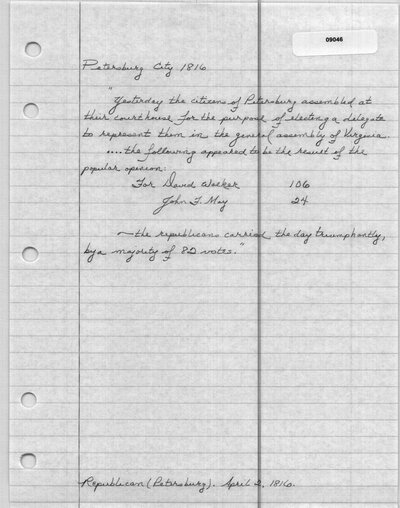 09046
Petersburg City 1816
"Yesterday the citizens of Petersburg assembled at
their courthouse for the purpose of electing a delegate
to represent them in the general assembly of Virginia.
....the following appeared to be the result of the
popular opinion:
For David Walker 106
John F. May 24
—the republicans carried the day triumphantly,
by a majority of 82 votes."
Republican (Petersburg). April 2, 1816.